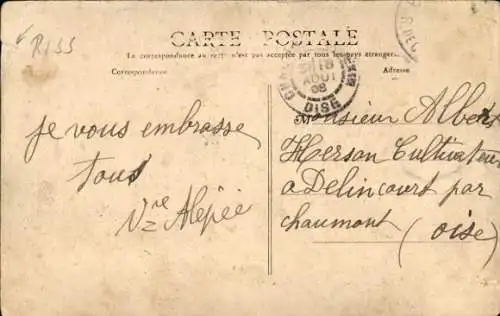 R155
CARTE POSTALE
La correspondance au recto n'est pas acceptée par tous les pays étrangers
Correspondance
Adresse
18
AOUT
08
OISE
je vous embrasse
tous
Monsieur Albert
Herson Cultivateur
a Delincourt par
chaumont
(oise)